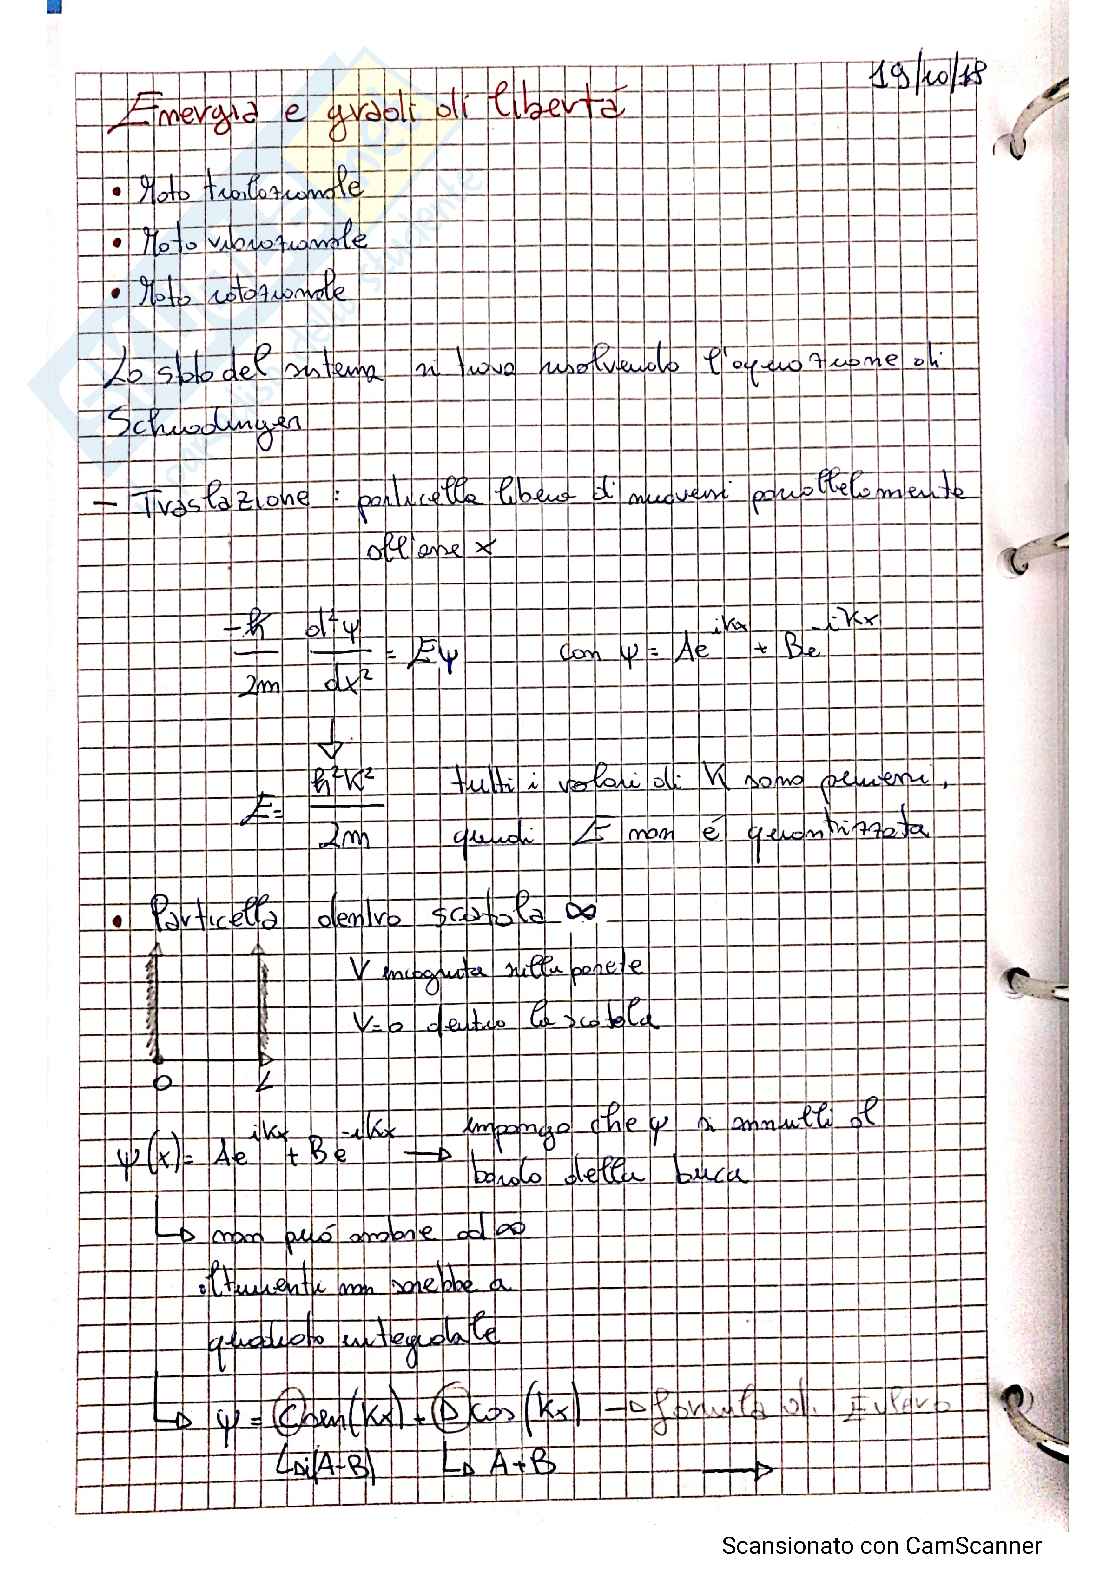 19/10/18
Energia e gradi di libertá
• Moto traslazionale
• Moto vibrazionale
• Moto rotazionale
Lo stato del sistema si trova risolvendo l'equazione di
Schrodinger
- Traslazione: particella libera di muoversi parallelamente
all'asse x
-ħ/2m d²ψ/dx² = Eψ con ψ = Ae^ikx + Be^-ikx
↓
E = ħ²k²/2m tutti i valori di K sono permessi,
quindi E non é quantizzata
• Particella dentro scatola ∞
V incognita sulla parete
V=0 dentro la scatola
0 L
ψ(x) = Ae^ikx + Be^-ikx → impongo che ψ si annulli al
bordo della buca
↳ non puó andare ad ∞
altrimenti non sarebbe a
quadrato integrabile
↳ ψ = C sen(kx) + D cos(kx) → formula di Eulero
↳ i(A-B) ↳ A+B →
Scansionato con CamScanner